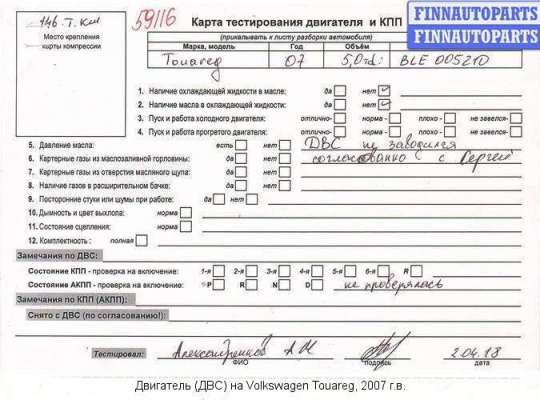 146 т. км
Место крепления
карты компрессии
59116
Карта тестирования двигателя и КПП
FINNAUTOPARTS
FINNAUTOPARTS
(прикалывать к листу разборки автомобиля)
Марка, модель Год Объём
Touareg 07 5,0 td: BLE 005210
1. Наличие охлаждающей жидкости в масле: да нет
2. Наличие масла в охлаждающей жидкости: да нет
3. Пуск и работа холодного двигателя: отлично- норма- плохо- не завелся-
4. Пуск и работа прогретого двигателя: отлично- норма- плохо- не завелся-
5. Давление масла: есть нет ДВС не заводился
6. Картерные газы из маслозаливной горловины: да нет согласованно с Сергей
7. Картерные газы из отверстия масляного щупа: да нет
8. Наличие газов в расширительном бачке: да нет
9. Посторонние стуки или шумы при работе: да нет
10. Дымность и цвет выхлопа: норма
11. Состояние сцепления: норма
12. Комплектность: полная
Замечания по ДВС:
Состояние КПП - проверка на включение: 1-я 2-я 3-я 4-я 5-я 6-я R
Состояние АКПП - проверка на включение: P R N D не проверялась
Замечания по КПП (АКПП):
Снято с ДВС (по согласованию!):
Тестировал: А.И. 2.04.18
ФИО подпись дата
Двигатель (ДВС) на Volkswagen Touareg, 2007 г.в.